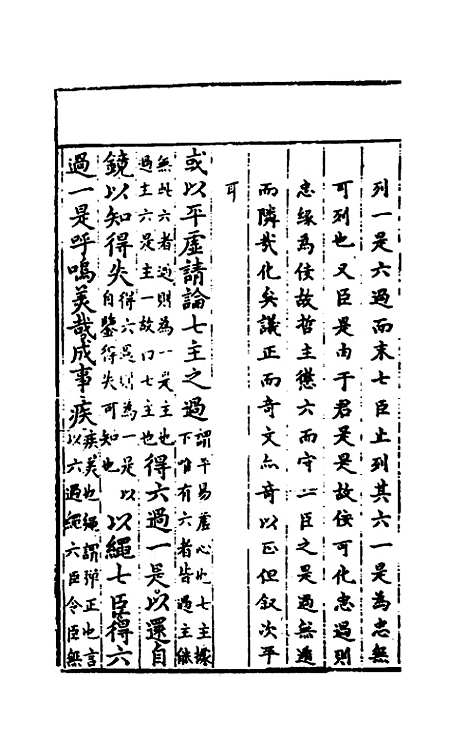 列一是六過而末七臣止列其六一是為忠無
可列也又臣是由于君是是故佞可化忠過則
忠緣為佞故哲主懲六而守二臣之是過無遁
而隣哉化矣議正而奇文亦奇以正但叙次平
耳
或以平虛請論七主之過謂平易虛心也七主據下唯有六者皆過主能
無此六者過則為一是主也過主六是主一故曰七主也得六過一是以還自
鏡以知得失得六過則為一是以自鑒得失可知也以繩七臣得六
過一是呼嗚美哉成事疾疾美也繩謂彈正也言以六過繩六臣令臣無